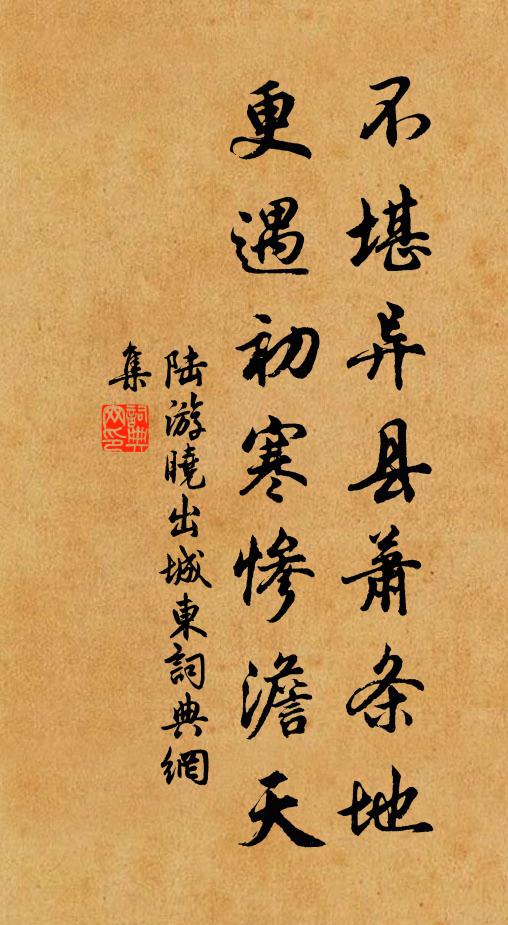 不堪异县萧条地
更遇初寒惨澹天
陆游曉出城東詞典網
集
詞典網印